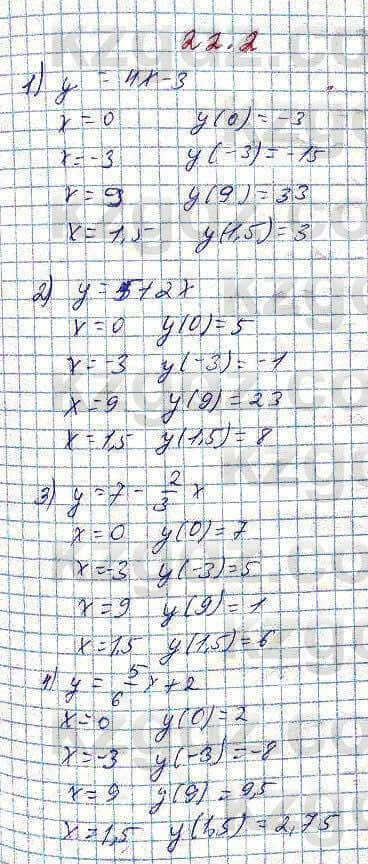 22.2
1) y = 4x-3
x=0 y(0)=-3
x=-3 y(-3)=-15
x=9 y(9)=33
x=1,5 y(1,5)=3
2) y=5+2x
x=0 y(0)=5
x=-3 y(-3)=-1
x=9 y(9)=23
x=1,5 y(1,5)=8
3) y=7-2/3 x
x=0 y(0)=7
x=-3 y(-3)=5
x=9 y(9)=1
x=1,5 y(1,5)=6
4) y=5/6 x+2
x=0 y(0)=2
x=-3 y(-3)=-8
x=9 y(9)=9,5
x=1,5 y(1,5)=2,75